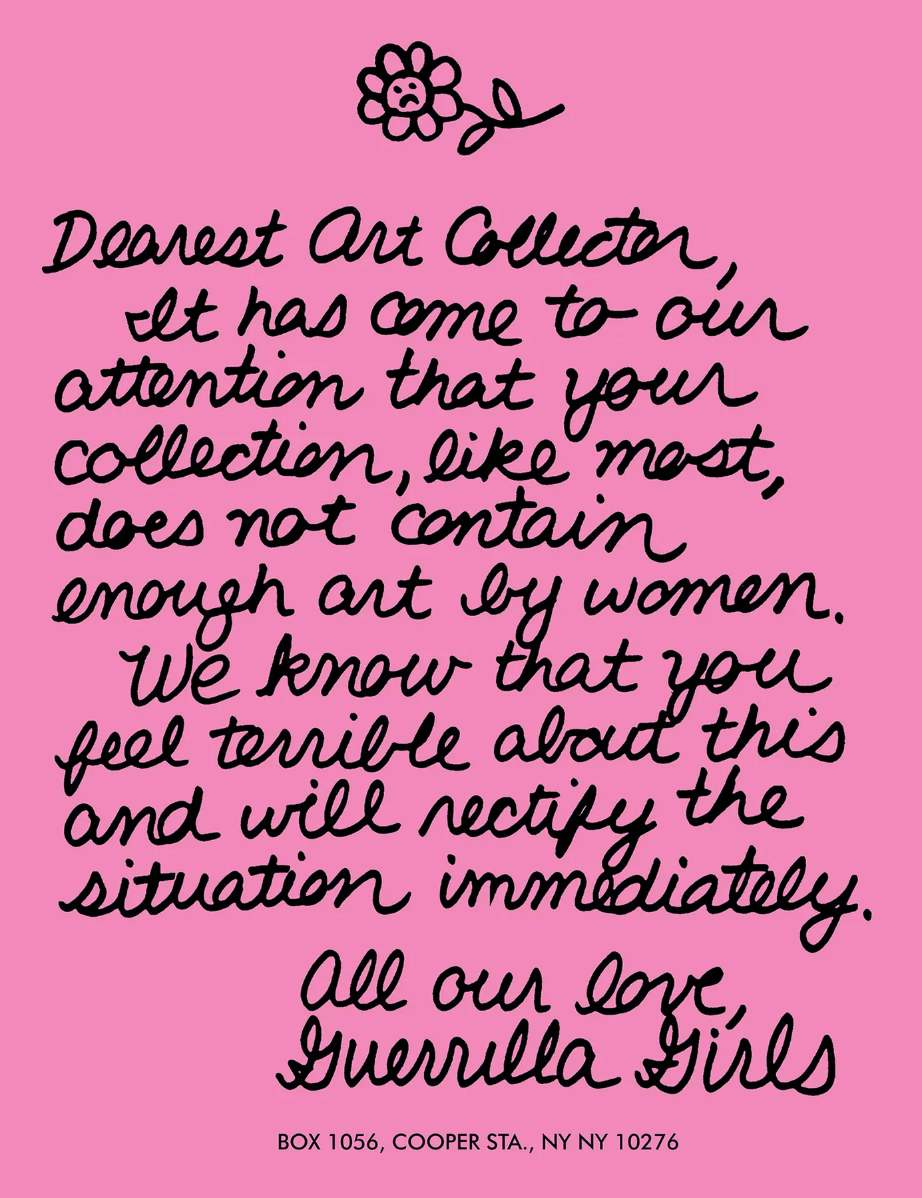 Dearest Art Collector,
It has come to our
attention that your
collection, like most,
does not contain
enough art by women.
We know that you
feel terrible about this
and will rectify the
situation immediately.
All our love,
Guerrilla Girls
BOX 1056, COOPER STA., NY NY 10276